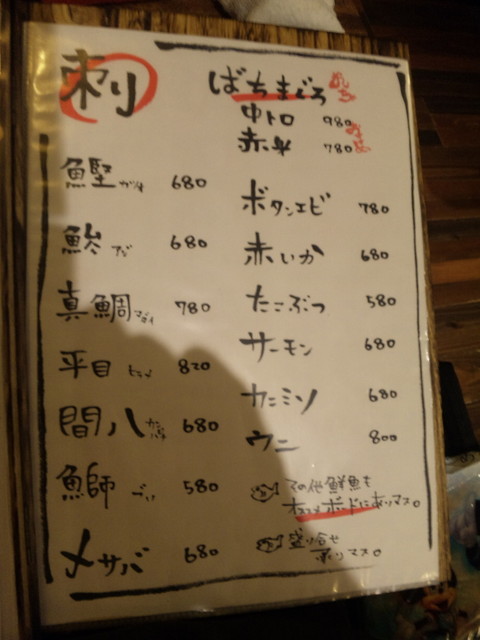 刺
鰹 ガツオ 680
鯵 アジ 680
真鯛 マダイ 780
平目 ヒラメ 820
間八 カンパチ 680
鰤 ブリ 580
〆サバ 680
ばちまぐろ
中トロ 980
赤身 780
ボタンエビ 780
赤いか 680
たこぶつ 580
サーモン 680
カニミソ 680
ウニ 800
その他鮮魚も
オススメボードにありマス。
盛り合せ
承りマス。